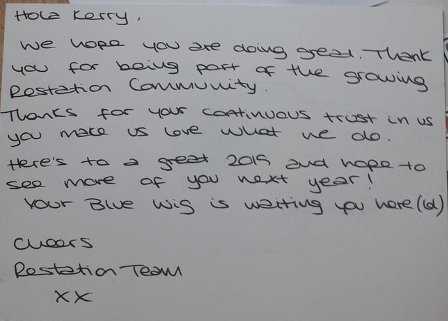 Hola Kerry,
We hope you are doing great. Thank
you for being part of the growing
Restation Community.
Thanks for your continuous trust in us
you make us love what we do.
Here's to a great 2019 and hope to
see more of you next year!
Your Blue Wig is waiting you here (lol)
Cheers
Restation Team
xx